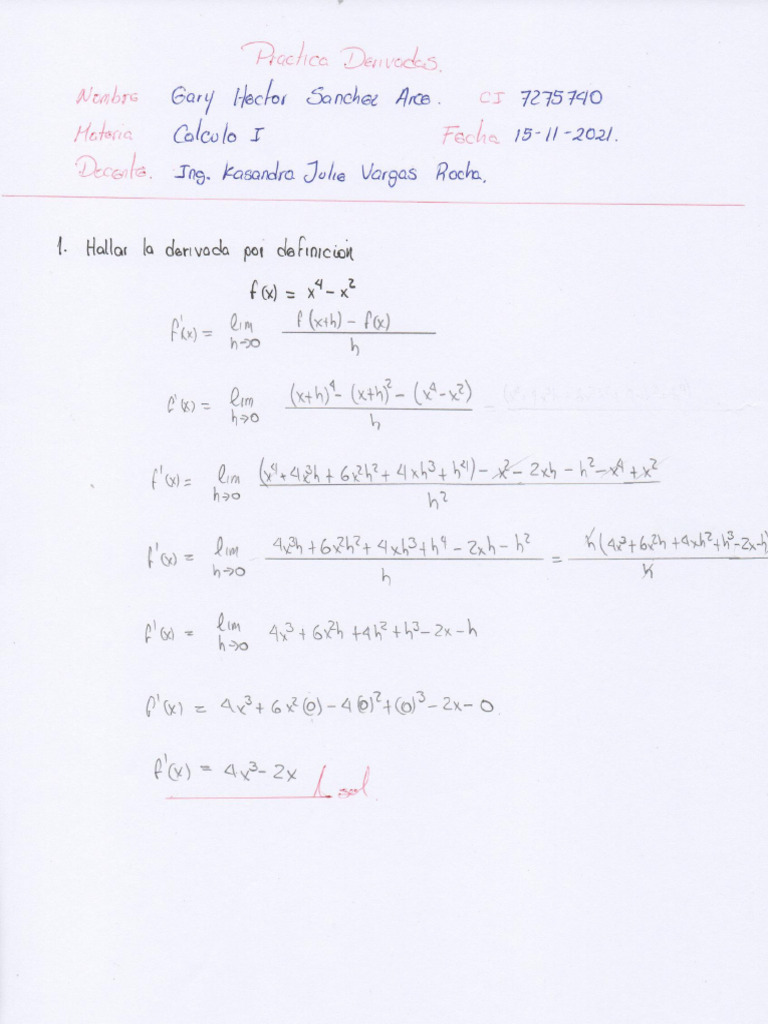 Practica Derivadas.
Nombre Gary Hector Sanchez Arce. CI 7275740
Materia Calculo I Fecha 15-11-2021.
Docente. Ing. Kasandra Julie Vargas Rocha.
1. Hallar la derivada por definición
f(x) = x⁴ - x²
f'(x) = lim h→0 (f(x+h) - f(x)) / h
f'(x) = lim h→0 ((x+h)⁴ - (x+h)² - (x⁴-x²)) / h
f'(x) = lim h→0 ((x⁴+4x³h+6x²h²+4xh³+h⁴) - x² - 2xh - h² - x⁴ + x²) / h²
f'(x) = lim h→0 (4x³h+6x²h²+4xh³+h⁴-2xh-h²) / h = h(4x³+6x²h+4xh²+h³-2x-h) / h
f'(x) = lim h→0 4x³+6x²h+4h²+h³-2x-h
f'(x) = 4x³+6x²(0)-4(0)²+(0)³-2x-0
f'(x) = 4x³-2x sol.